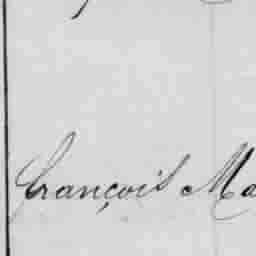 François Ma